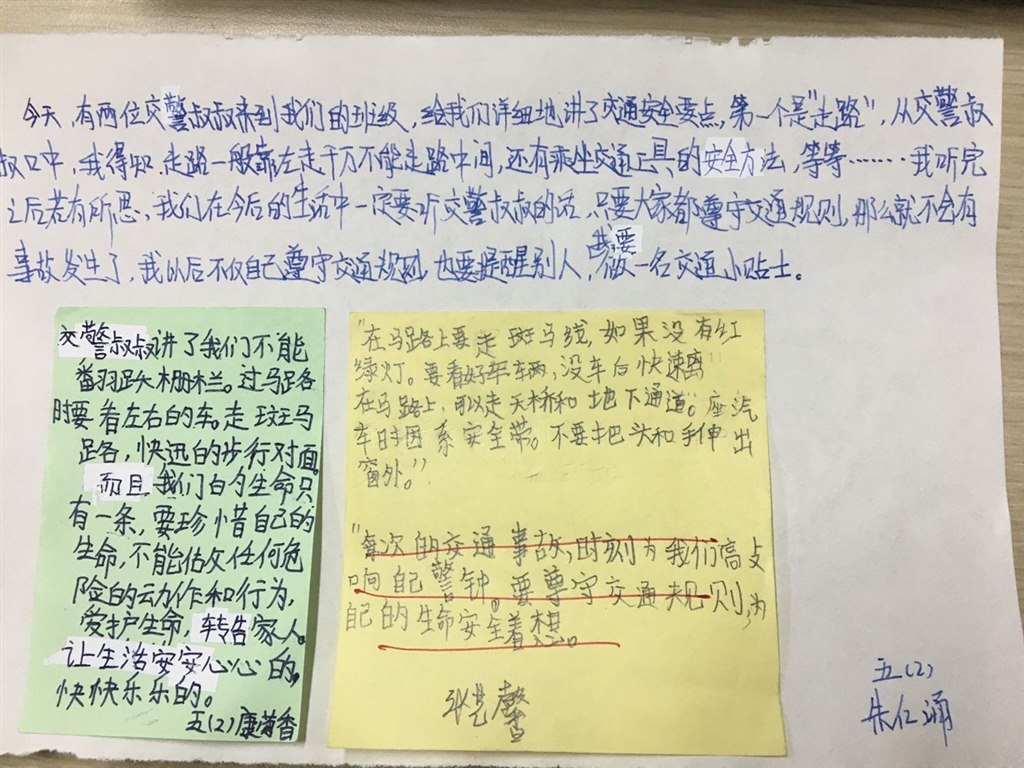 今天,有两位交警叔叔来到我们的班级,给我们详细地讲了交通安全要点,第一个是"走路",从交警叔
叔口中,我得知,走路一般靠左走千万不能走路中间,还有乘坐交通工具的安全方法,等等……我听完
之后若有所思,我们在今后的生活中一定要听交警叔叔的话,只要大家都遵守交通规则,那么就不会有
事故发生了,我以后不仅自己遵守交通规则,也要提醒别人,我要做一名交通小贴士。
交警叔叔讲了我们不能
翻跃栅栏。过马路
时要看左右的车。走斑马
路,快迅的步行对面。
而且我们的生命只
有一条,要珍惜自己的
生命,不能做任何危
险的动作和行为,
爱护生命,转告家人。
让生活安安心心的,
快快乐乐的。
五(2)康 香
"在马路上要走斑马线,如果没有红
绿灯。要看好车辆,没车后快速离
在马路上,可以走天桥和地下通道。"座汽
车时因系安全带。不要把头和手伸出
窗外。"
"每次的交通事故,时刻为我们高支
响自己警钟。要尊守交通规则,为
自己的生命安全着想。
张 馨
五(2)
朱仁涌